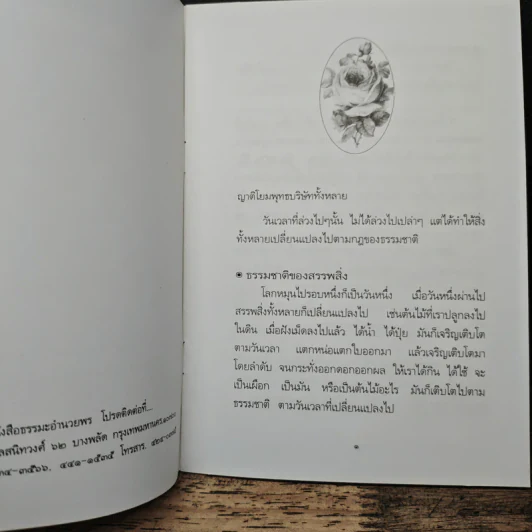 ังสือธรรมะอำนวยพร โปรดติดต่อที่...
ลสนิทวงศ์ ๖๒ บางพลัด กรุงเทพมหานคร ๑๐๗๐๐
๓๔-๓๕๖๖, ๔๔๑-๑๕๓๕ โทรสาร.
ญาติโยมพุทธบริษัททั้งหลาย
วันเวลาที่ล่วงไปๆนั้น ไม่ได้ล่วงไปเปล่าๆ แต่ได้ทำให้สิ่ง
ทั้งหลายเปลี่ยนแปลงไปตามกฎของธรรมชาติ
ธรรมชาติของสรรพสิ่ง
โลกหมุนไปรอบหนึ่งก็เป็นวันหนึ่ง เมื่อวันหนึ่งผ่านไป
สรรพสิ่งทั้งหลายก็เปลี่ยนแปลงไป เช่นต้นไม้ที่เราปลูกลงไป
ในดิน เมื่อฝังเม็ดลงไปแล้ว ได้น้ำ ได้ปุ๋ย มันก็เจริญเติบโต
ตามวันเวลา แตกหน่อแตกใบออกมา แล้วเจริญเติบโตมา
โดยลำดับ จนกระทั่งออกดอกออกผล ให้เราได้กิน ได้ใช้ จะ
เป็นเผือก เป็นมัน หรือเป็นต้นไม้อะไร มันก็เติบโตไปตาม
ธรรมชาติ ตามวันเวลาที่เปลี่ยนแปลงไป